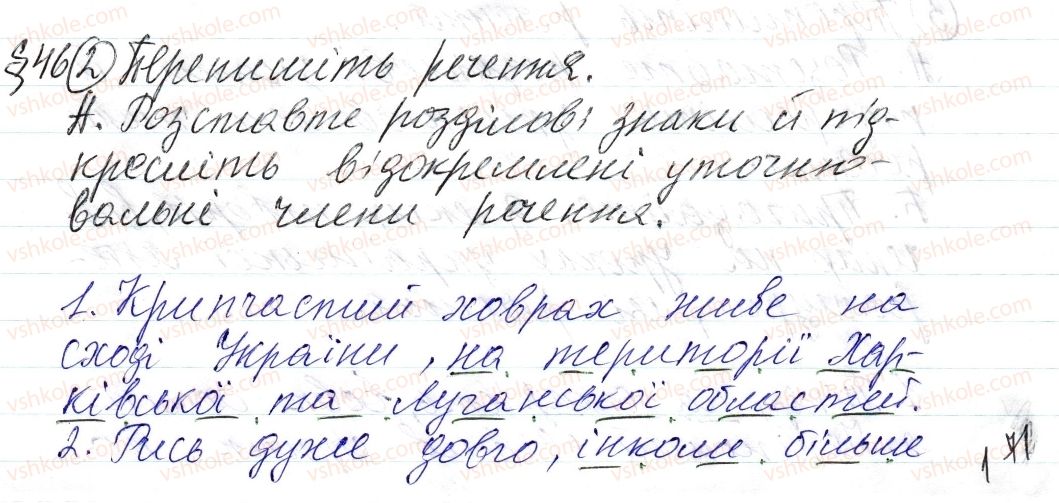 §46 2 Перепишіть речення.
А. Розставте розділові знаки й під-
кресліть відокремлені уточню-
вальні члени речення.
1. Крипчастий ховрах живе на
сході України, на території Хар-
ківської та Луганської областей.
2. Рись дуже довго, інколи більше